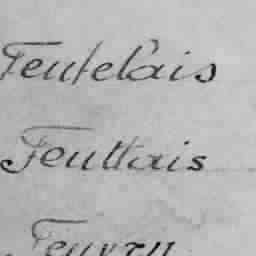 Feutelais
Feuttais
Feuvru